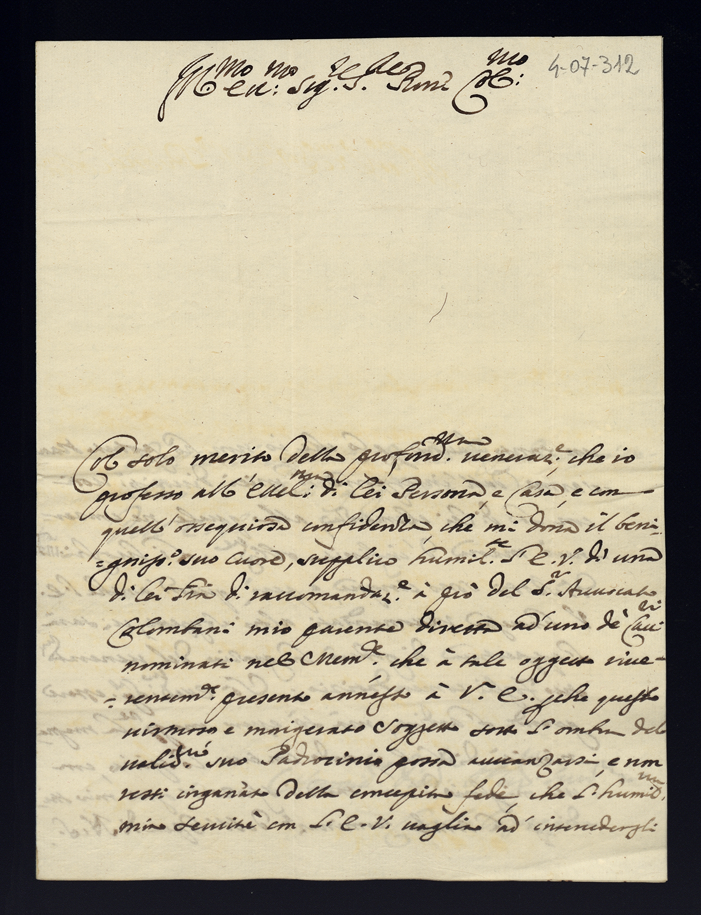 Ill.mo Ecc.mo Sig.re S.r Pron Col.mo
4-07-312
Col solo merito della profond.ma veneraz.e che io
professo all' Eccel.ma di lei Persona, e Casa, e con
quell' ossequiosa confidenza, che mi dona il beni-
=gniss.o suo Cuore, supplico humil.te l' E. V. di una
di lei l'ra di raccomandaz.e à prò del S.r Avvocato
Colombani mio parente diretta ad uno dè Cau.ri
nominati nel Mem.le che à tale oggetto rive-
=rentem.te presento annesso à V. E., perche questo
virtuoso e morigerato Soggetto sotto l' ombra del
valid.mo suo Padrocinio possa avvanzarsi, e non
resti ingannato della concepita fede che l' humil.ma
mia servitù con l' E. V. vaglia ad' intercedergli